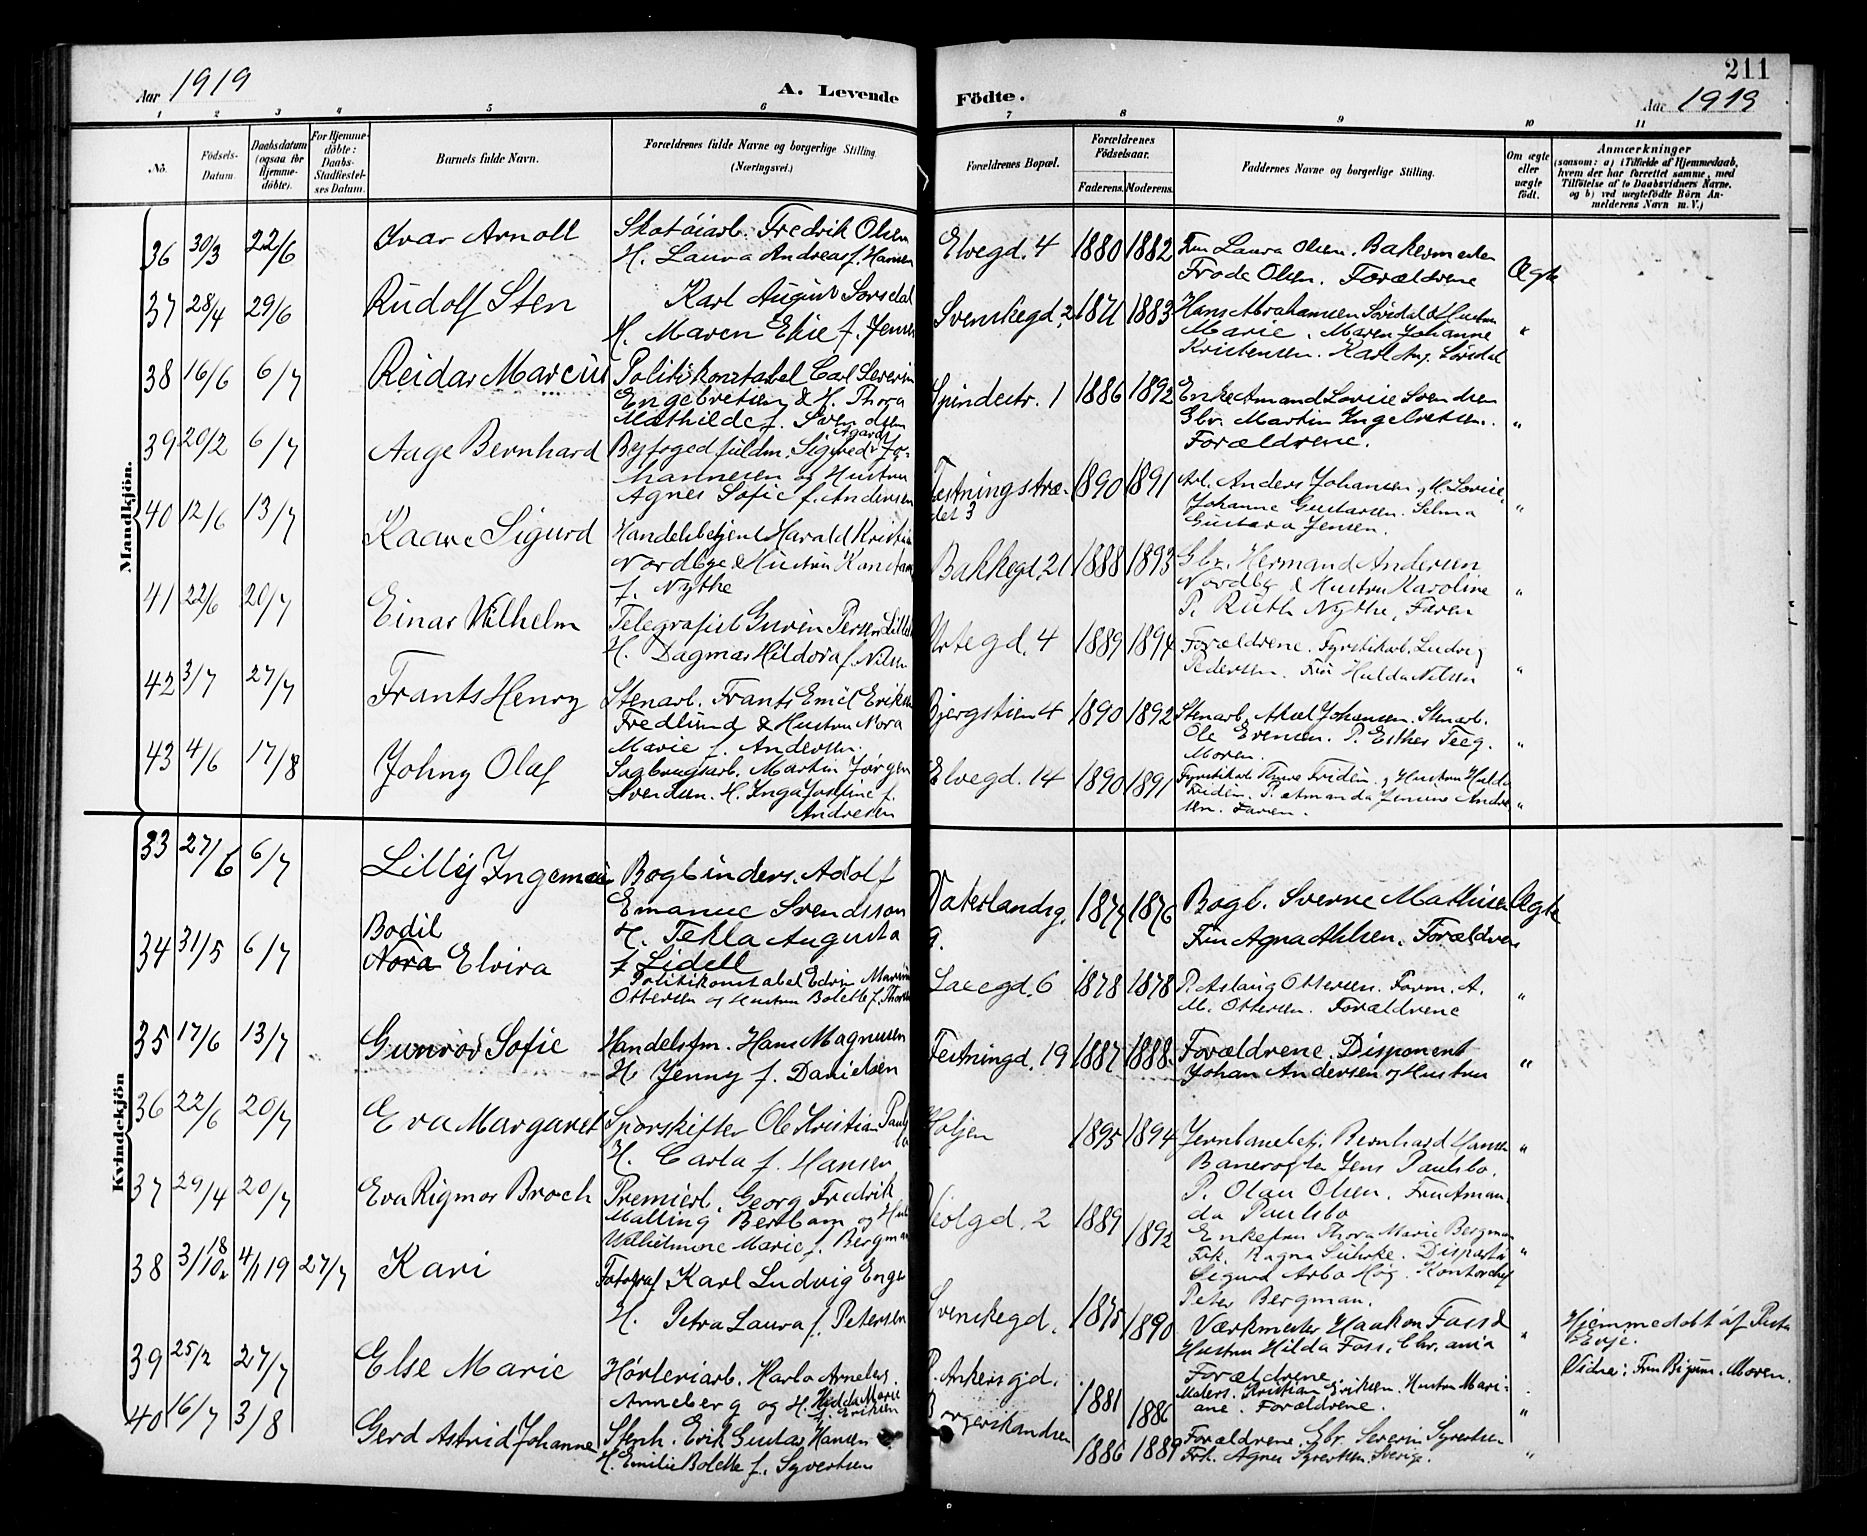 Aar 1919
A. Levende
Födte.
211
Aar 1919
1 2 3 4 5 6 7 8 9 10 11
No.
Födsels-
Datum.
Daabsdatum
(ogsaa for
Hjemme-
döbte).
For Hjemme-
döbte:
Daabs-
Stadfæstel-
ses Datum.
Barnets fulde Navn.
Forældrenes fulde Navne og borgerlige Stilling
(Næringsvei.)
Forældrenes Bopæl.
Forældrenes
Födselsaar.
Faderens. Moderens.
Faddernes Navne og borgerlige Stilling.
Om ægte
eller
uægte
födt.
Anmærkninger
(saasom: a) i Tilfælde af Hjemmedaab,
hvem der har forrettet samme, med
Tilföielse af to Daabsvidners Navne,
og b) ved uægtefödte Börn An-
melderens Navn m. V.)
Mandkjön.
36 30/3 22/6 Ivar Arnolt
Skotöiarb. Fredrik Olsen
H. Laura Andrea f. Hansen
Elvegd. 4 1880 1882
Fru Laura Olsen. Bakermester
Frode Olsen. Forældrene
Ægte
37 28/4 29/6 Rudolf Sten
Karl August Sørsdal
H. Maren Elise f. Jensen
Svenskegd. 2 1871 1883
Hans Abrahamsen Sørsdal & Hustru
Marie. Maren Johanne
Kristensen. Karl Aug. Sørsdal
"
38 16/6 6/7 Reidar Marcius
Politikonstabel Carl Severin
Engebretsen & H. Thora
Mathilde f. Svendsen
Spindestr. 1 1886 1892
Enke Amand Lovise Svendsen
Gbr. Martin Ingebretsen.
Forældrene.
"
39 20/2 6/7 Aage Bernhard
Byfogedfuldm. Sigurd Jo-
hannesen og Hustru
Agnes Sofie f. Andersen
Fæstningstræ-
det 3 1890 1891
Arb. Anders Johansen, H. Lovise,
Johanne Gustavsen. Selma
Gustava Jensen.
"
40 12/6 13/7 Kaare Sigurd
Handelsbetjent Harald Kristian
Nordbye & Hustru
f. Nythe
Bakkegd. 21 1888 1893
Gbr. Herman Andersen
Nordby & Hustru Karoline
P. Ruth Nythe, Faren
"
41 22/6 20/7 Einar Wilhelm
Telegrafist
H. Dagmar Hildora f. Nilsen
4 1889 1894
Forældrene. Fyrstikarb. Ludvig
Pedersen. Fru Hulda Nilsen
"
42 3/7 27/7 Frants Henry
Stenarb. Frants Emil Eriksen
Fredlund & Hustru Nora
Marie f. Andersen.
Bjergstien 4 1890 1892
Stenarb. Aksel Johansen. Stenarb.
Ole Evensen. P. Esther Teeg.
Moren.
"
43 4/6 17/8 Johny Olaf
Sagbrugsarb. Martin Jørgen
Svendsen. H. Inga Josefine f.
Andresen
Elvegd. 14 1890 1891
Fyrstikarb. Thure Fridén. & Hustru Hulda
Fridén. P. Amanda Jensine Andre
sen. Faren.
"
Kvindekjön
33 27/6 6/7 Lilly Ingemarie
Bogbinders. Adolf
Emanuel Svendsson
H. Tekla Augusta
f. Lidell
Vaterlandsg.
9. 1874 1876
Bogb. Sverre Mathisen
Forældrene
Ægte
34 31/5 6/7 Bodil
Nora Elvira
Politikonstabel Edvin Marius
Ottersen og Hustru Bolette f. Thorsen
6 1878 1878
P. Aslaug Ottersen. Farm. A.
M. Ottersen. Forældrene
"
35 17/6 13/7 Gunvor Sofie
Handelsfm. Hans Magnussen
H. Jenny f. Danielsen
Festningd. 19 1887 1888
Forældrene. Disponent
Johan Andersen og Hustru
"
36 22/6 20/7 Eva Margaret
Sporskifter Ole Kristian Pauls
bo
H. Carla f. Hansen
Høljen 1895 1894
Jernbanebetj. Bernhard Hansen
Banevogter Jens Paulsbo.
P. Olau Olsen. Fru Aman
da Paulsbo
"
37 29/4 20/7 Eva Rigmor Broch
Premierl. Georg Fredrik
Malling Bertram og Hust
Wilhelmine Marie f. Bergman
Violgd. 2 1889 1892
Enkefru Thora Marie Bergman
Frk. Ragna Suhrke. Disp.
Sigurd Arbo Høg. Kontorchef
Peter Bergman.
"
38 3/10 18 4/1 19 27/7 Kari
Fotograf Karl Ludvig Enger
H. Petra Laura f. Petersen
Svenskegd. 1875 1890
Værkmester Haakon Foss &
Hustru Hilda Foss, Chr.ania
Forældrene
"
Hjemmedøbt af
Vidne: Fru Moren.
39 25/2 27/7 Else Marie
Arneberg og H. Hilda Marie
f. Eriksen
P. Ankersgd. 1881 1886
Malers. Kristian Eriksen. Hustru Mari-
ane. Forældrene.
"
40 16/7 3/8 Gerd Astrid Johanne
Stenh. Erik Gustav Hansen
H. Emilie Bolette f. Syvertsen
Borgerskandsen 1886 1889
Forældrene. Gbr. Severin Syvertsen
Frk. Agnes Syvertsen. Sverige.
"